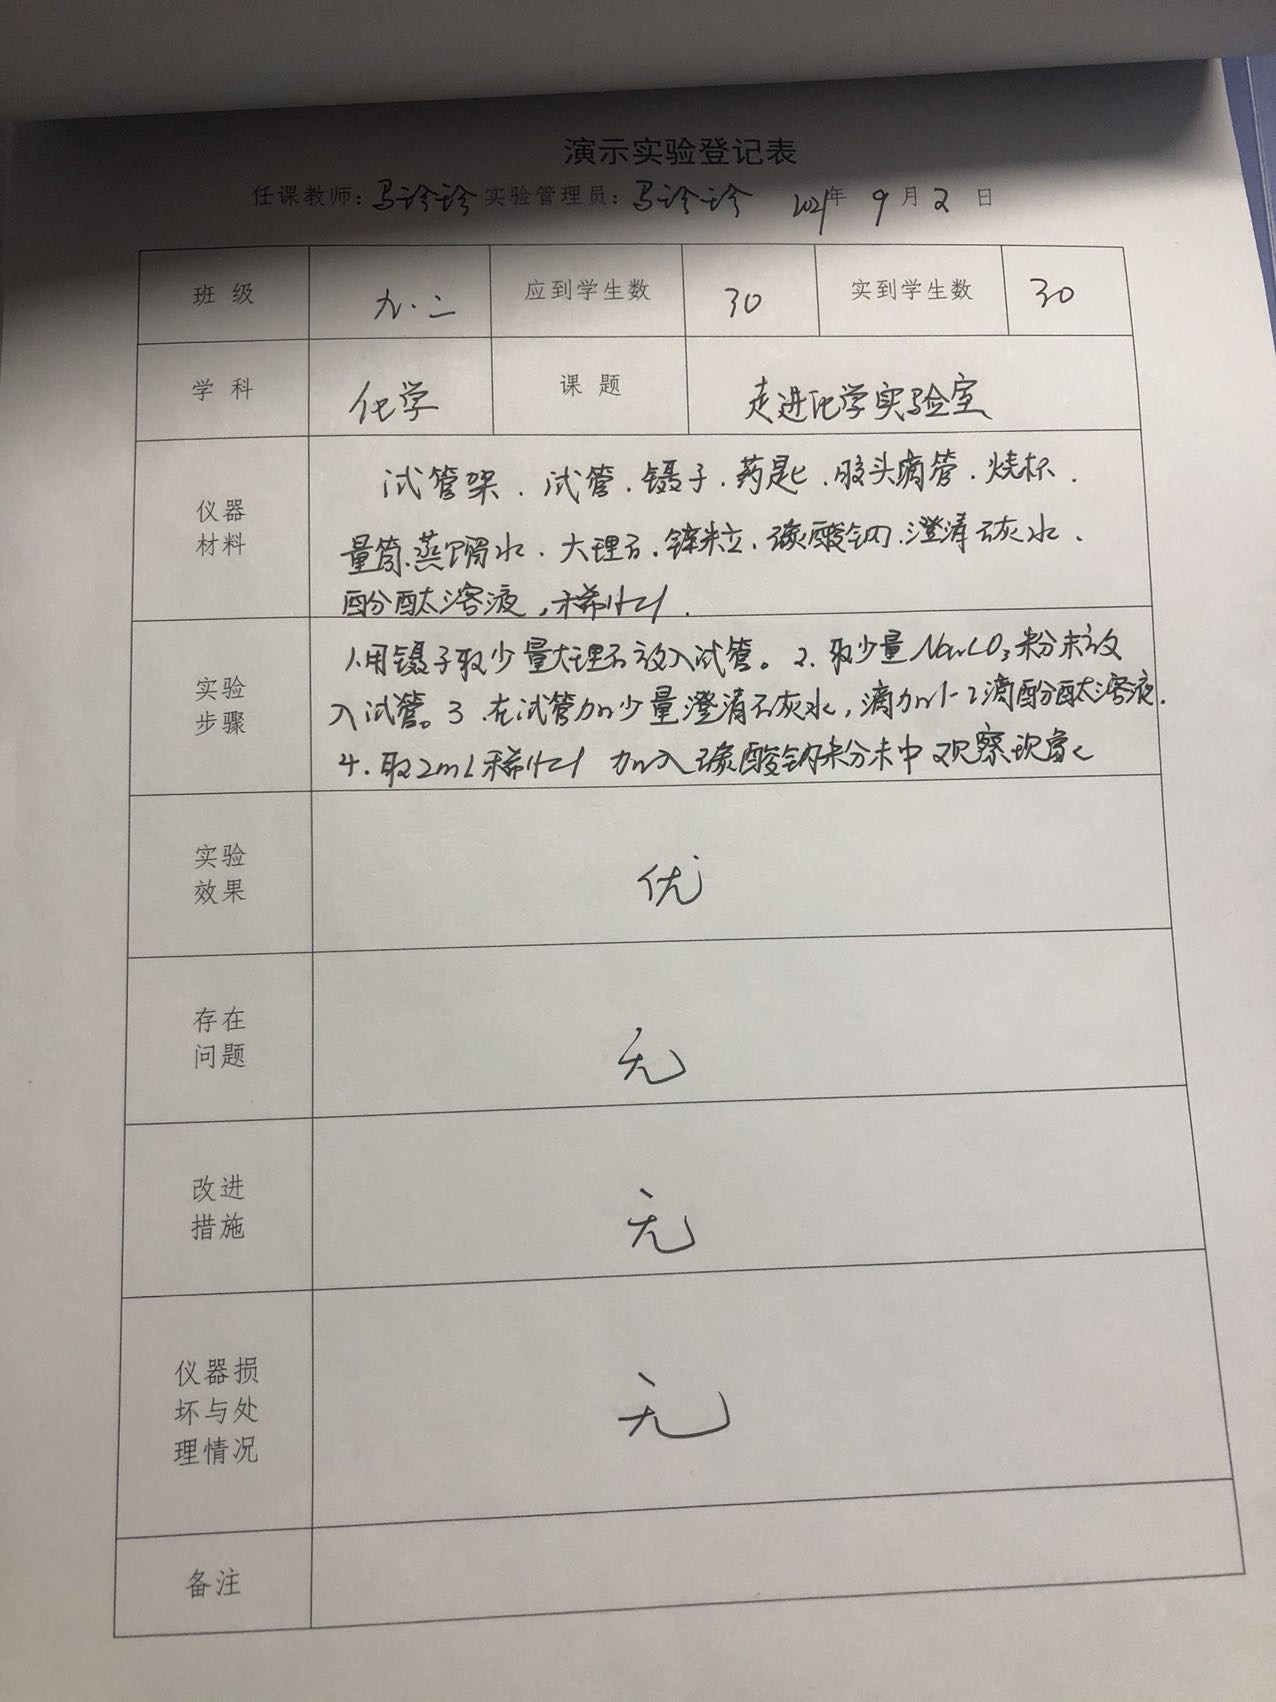 演示实验登记表
任课教师：马珍珍 实验管理员：马珍珍 2021年 9月 2 日
班 级 九.二 应到学生数 30 实到学生数 30
学 科 化学 课 题 走进化学实验室
仪器
材料
试管架、试管、镊子、药匙、胶头滴管、烧杯、
量筒、蒸馏水、大理石、锌粒、碳酸钠、澄清石灰水、
酚酞溶液，稀HCl.
实验
步骤
1.用镊子取少量大理石放入试管。2.取少量Na2CO3粉末放
入试管。3.在试管加少量澄清石灰水，滴加1-2滴酚酞溶液.
4.取2mL稀HCl 加入碳酸钠粉末中观察现象
实验
效果
优
存在
问题
无
改进
措施
无
仪器损
坏与处
理情况
无
备注